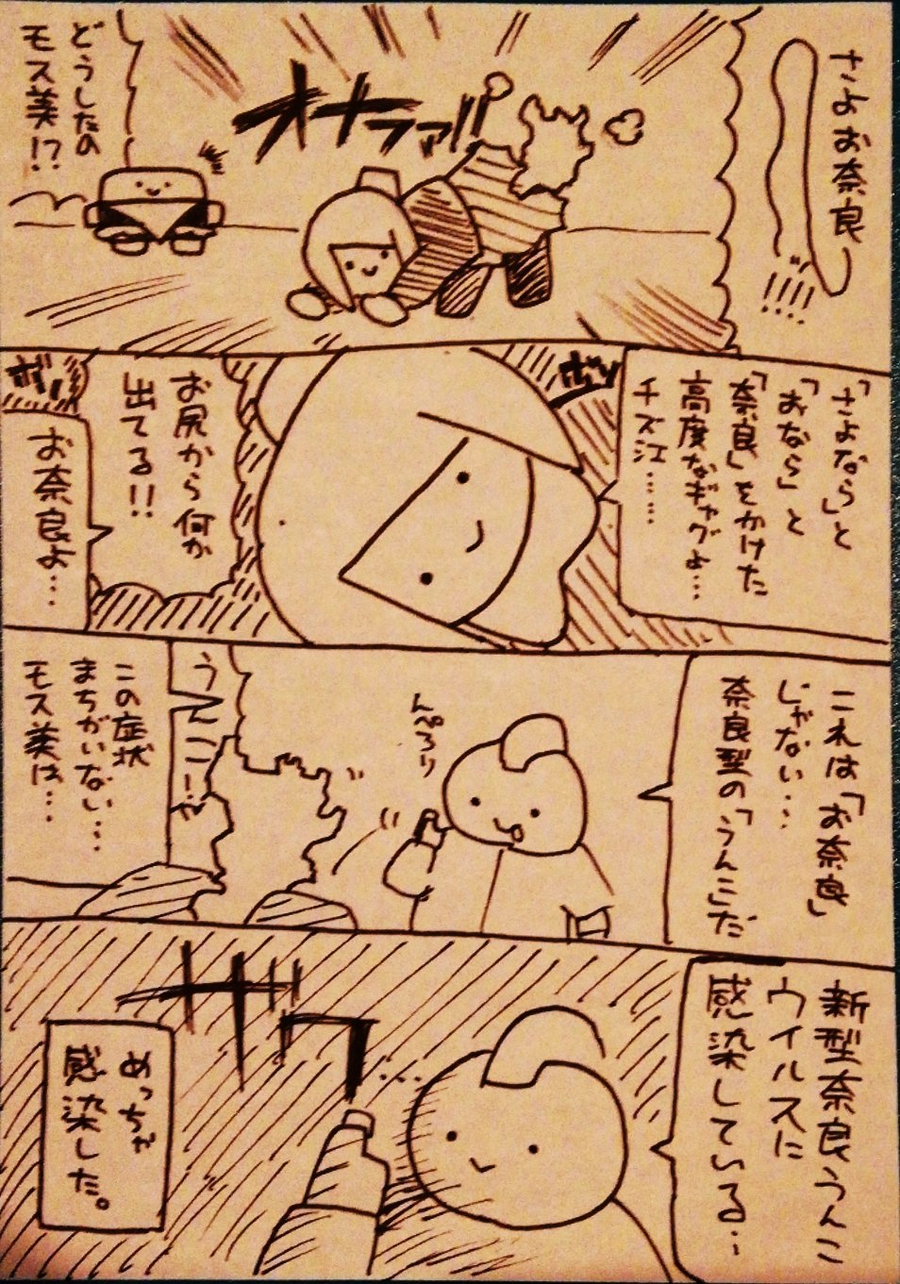 さよお奈良
!!!!
オナラァ!!
どうしたの
モス美!?
「さよなら」と
「おなら」と
「奈良」をかけた
高度なギャグよ…
チズ江……
ボソ
お尻から何か
出てる!!
ボソ
お奈良よ…
これは「お奈良」
じゃない…
奈良型の「うんこ」だ
んぺろり
うんこ!
この症状
まちがいない…
モス美は…
新型奈良うんこ
ウイルスに
感染している…
ザワ…
めっちゃ
感染した。